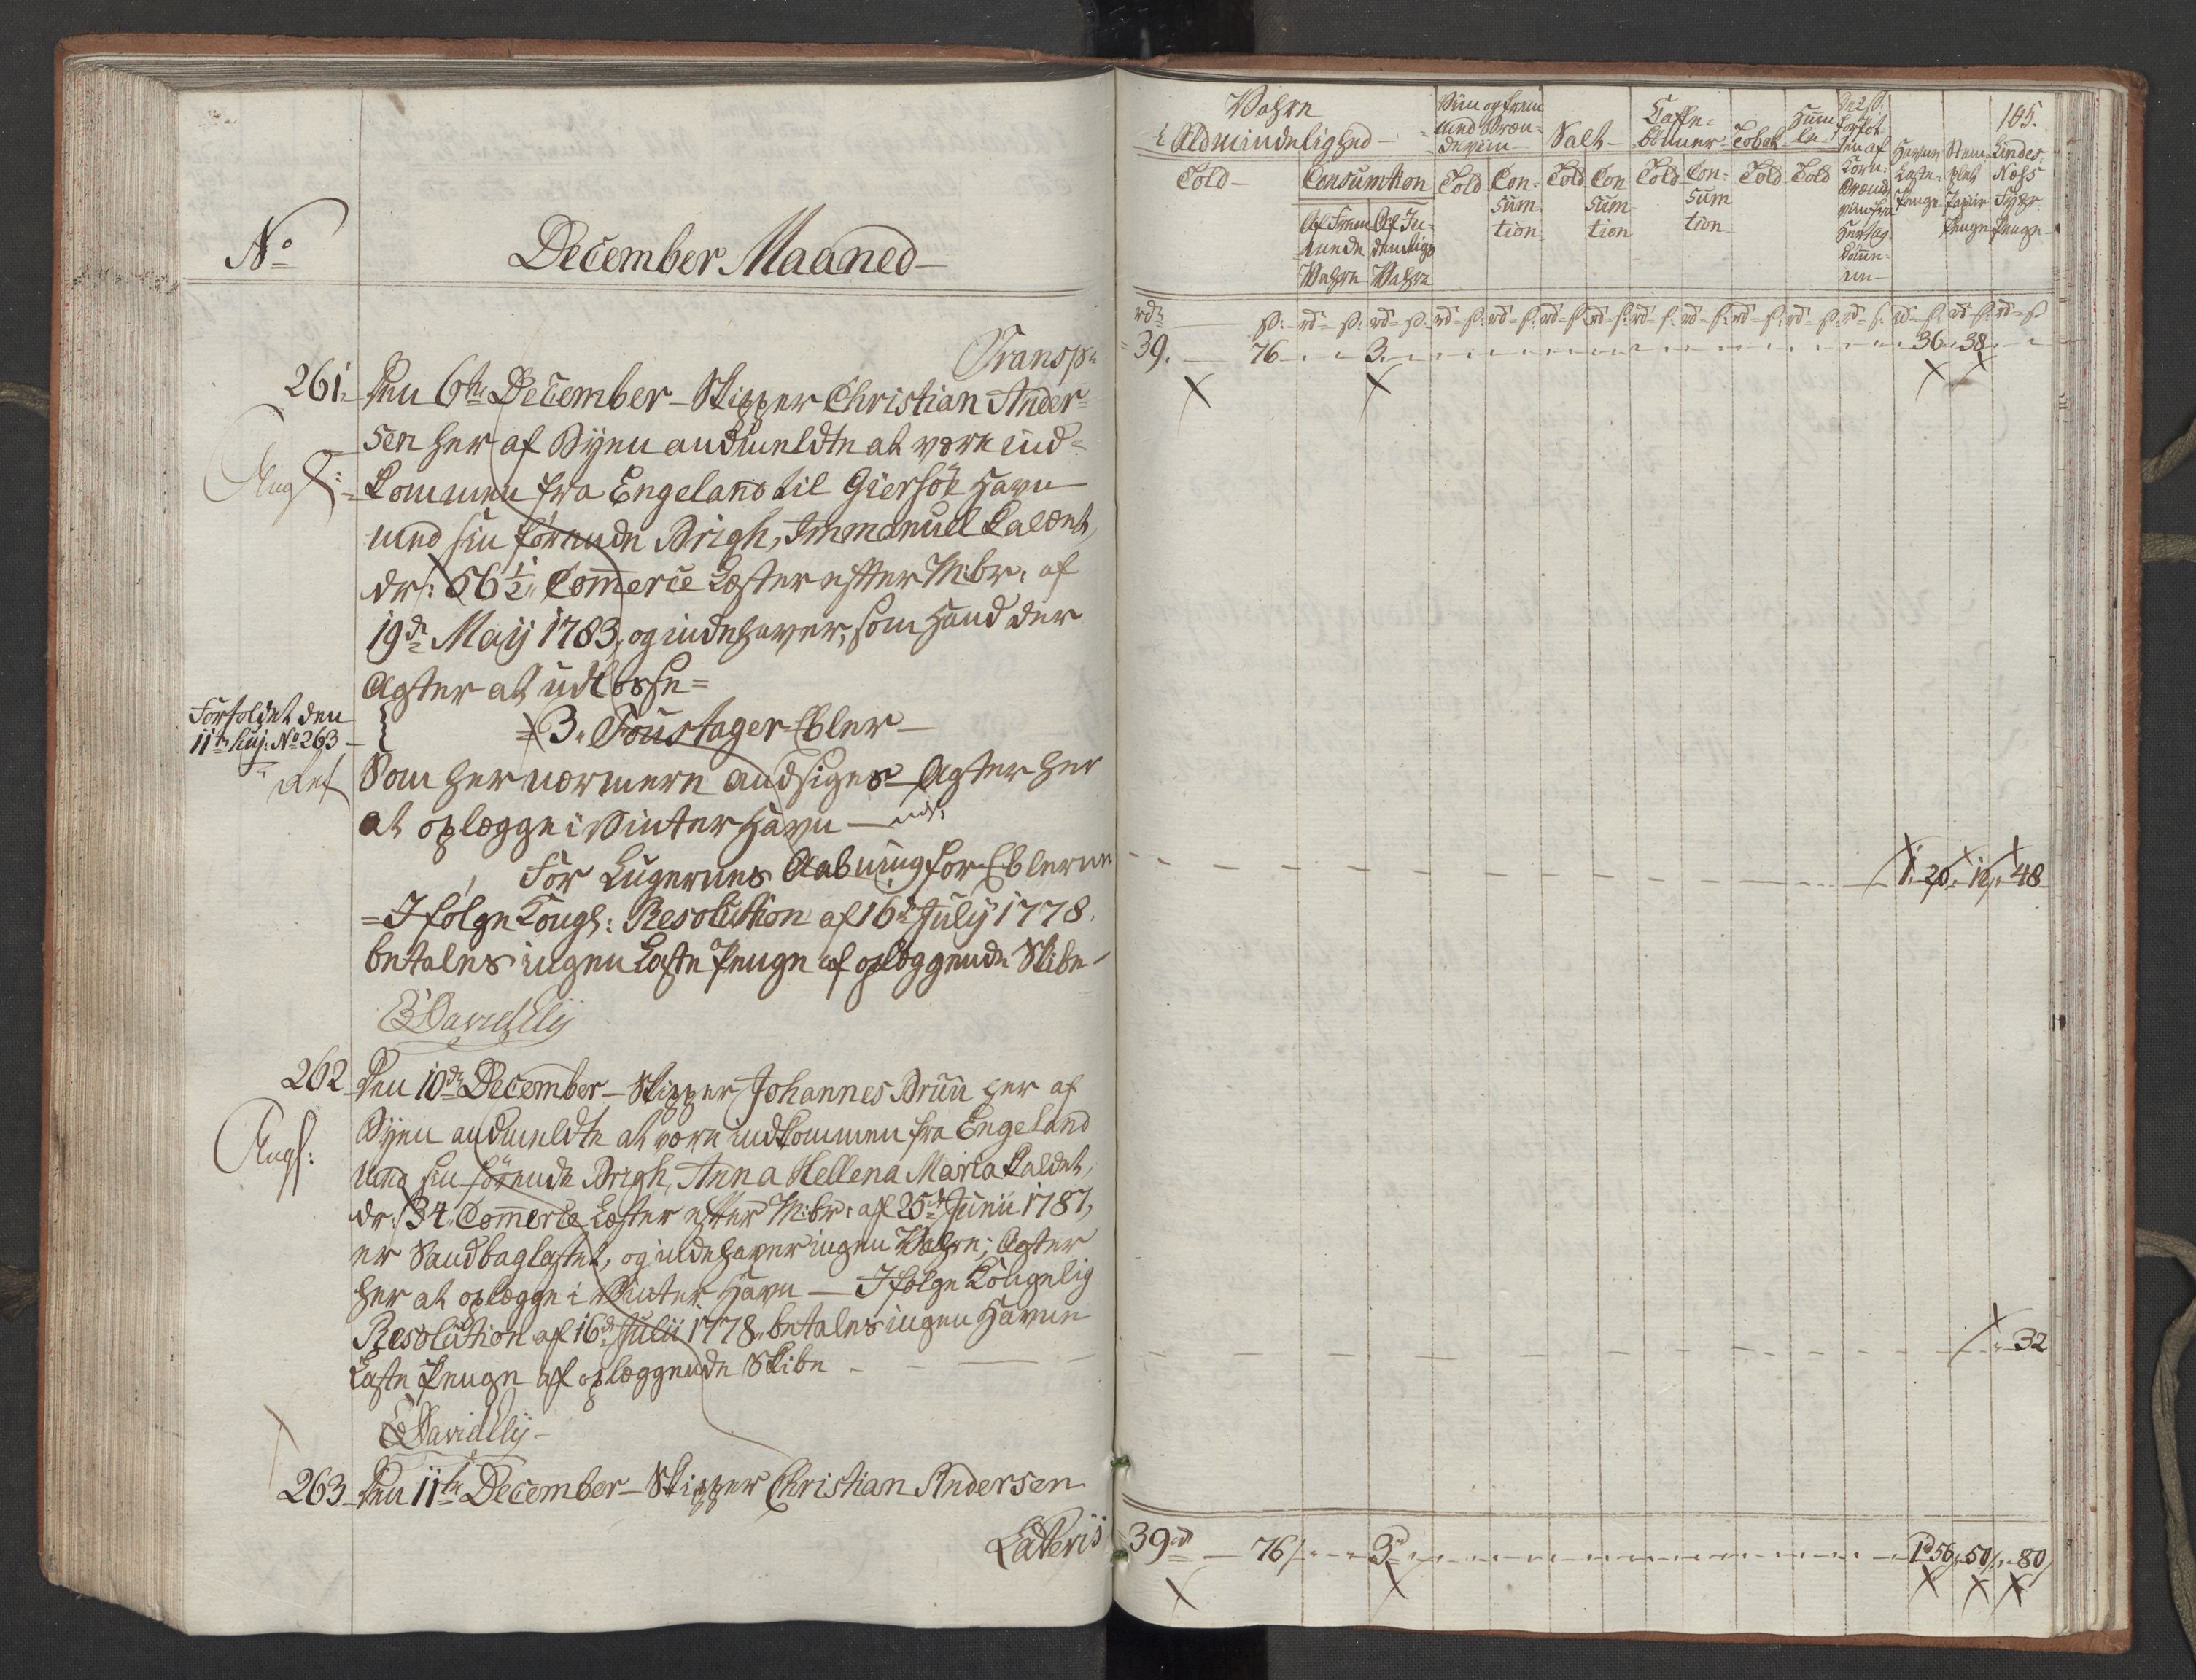 No
December Maaned
Transp:
261. Den 6te December Skipper Christian Ander-
sen her af Byen andmeldte at være ind-
Angf:
kommen fra Engeland til Giersöe Havn
med sin förende Brigh, Immanuel Kaldet,
dr: 56 1/2 Commerce Læster efter M:br: af
19de Maij 1783, og indehaver, som Hand der
Agter at udlosse=
Fortoldet den
11te huj: No 263
3. Foustager Ebler
Som her nærmere andsiges Agter her
at oplegge i Vinter Havn
For Lugernes Aabning for Eblerne
=Ifölge Kongl: Resolution af 16de Julij 1778.
betales ingen Laste Penge af oplæggende Skibe
262 Den 10de December Skipper Johannes Bruu her af
Angf:
Byen andmeldte at være indkommen fra Engeland
med sin förende Brigh, Anna Hellena Maria Kaldet,
dr: 34 Commerce Læster efter M:br: af 25de Junii 1787,
er Sandbaglastet, og indehaver ingen Vahre; Agter
her at oplægge i Vinter Havn – Ifölge Kongelig
Resolution af 16de Julii 1778. betales ingen Havne
Laste Penge af oplæggende Skibe
263 Den 11te December Skipper Christian Andersen
Lateris
165.
Vahre
i Aldmindelighed
Viin og frem
med Bræn-
deviin
Salt
Kaffe-
bönner
Tobak
Hum
le
Told
Consumtion
Af Frem
mede
Vahre
Af In-
denlige
Vahre
Told
Con-
sum
tion
Told
Con
sum
tion
Told
Con-
sum
tion
Told
Told
Havne
Laste-
Penge
Stem-
plet
Papiir
Penge
Lindes
Næss
Fyhr
Penge
39. 76 3. 36 38
1. 20. 12. 48
32
39rd 76 3rd 1rd 56 50 80